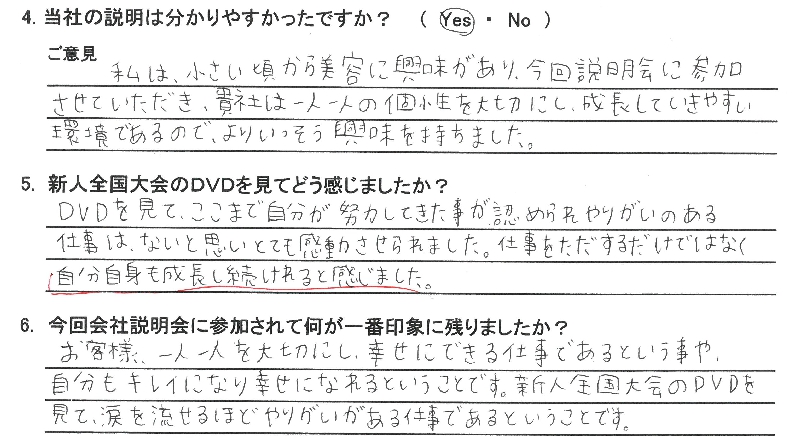 4. 当社の説明は分かりやすかったですか？ （ Yes ・ No ）
ご意見
私は、小さい頃から美容に興味があり、今回説明会に参加
させていただき、貴社は一人一人の個性を大切にし、成長していきやすい
環境であるので、よりいっそう興味を持ちました。
5. 新人全国大会のDVDを見てどう感じましたか？
DVDを見て、ここまで自分が努力してきた事が認められやりがいのある
仕事は、ないと思いとても感動させられました。仕事をただするだけではなく
自分自身も成長し続けれると感じました。
6. 今回会社説明会に参加されて何が一番印象に残りましたか？
お客様、一人一人を大切にし、幸せにできる仕事であるという事や、
自分もキレイになり幸せになれるということです。新人全国大会のDVDを
見て、涙を流せるほどやりがいがある仕事であるということです。